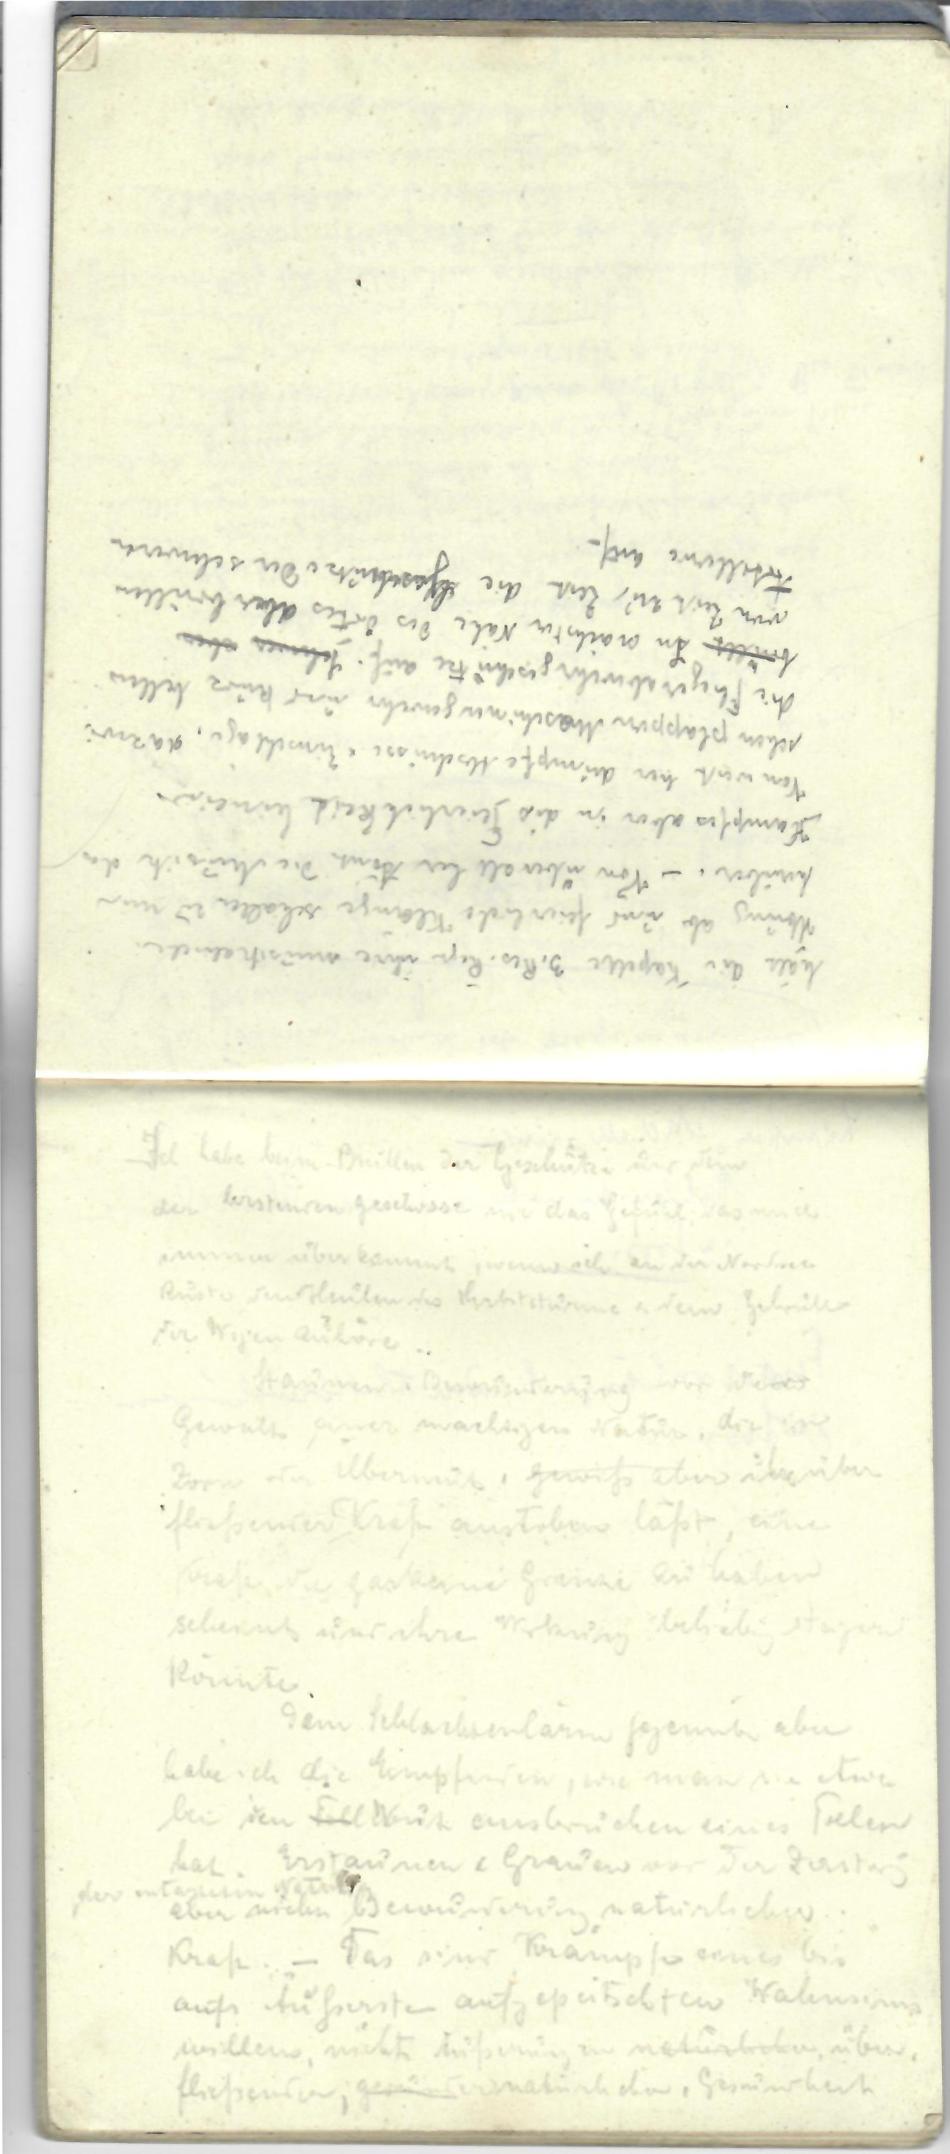 hält die Kapelle 3. Res. Regt ihre
Übung ab und feierliche Klänge schallen zu mir
herüber. – Von überall her tönt die Musik des
Kampfes aber in die Feierlichkeit hinein.
Von weit her dumpfe Abschüsse & Einschläge, dazwi-
schen plappern Maschinengewehr und kurz bellen
die Fliegerabwehrgeschütze auf. Schwer aber
brüllt In nächster Nähe des Ortes aber brüllen
von Zeit zu Zeit die Geschütze der schweren
Artillerie auf.
Ich habe beim Brüllen der Geschütze und dem
der berstenden Geschosse nie das Gefühl, das mich
immer überkommt, wenn ich an der Nordsee
Küste dem Heulen des Herbststurms & dem Gebrüll
der Wogen zuhöre.
Staunen & Bewunderung vor der
Gewalt einer mächtigen Natur, die
Zorn oder Übermut, gewiß aber über
fließender Kraft austoben läßt, eine
Kraft, die gar keine Grenze zu haben
scheint und ihre Wirkung beliebig steigern
könnte.
Dem Schlachtenlärm gegenüber aber
habe ich die Empfinden, wie man sie etwa
bei den Toll Wutausbrüchen eines Tollen
hat. Erstaunen & Grauen vor der Zerstörg
der Natur
aber nicht Bewunderung natürlicher
Kraft. – Das sind Krämpfe eines bis
aufs Äußerste aufgepeitschten Wahnsinns
willens, nicht Äußerungen natürlicher, über-
fließender, natürlicher, Gesundheit